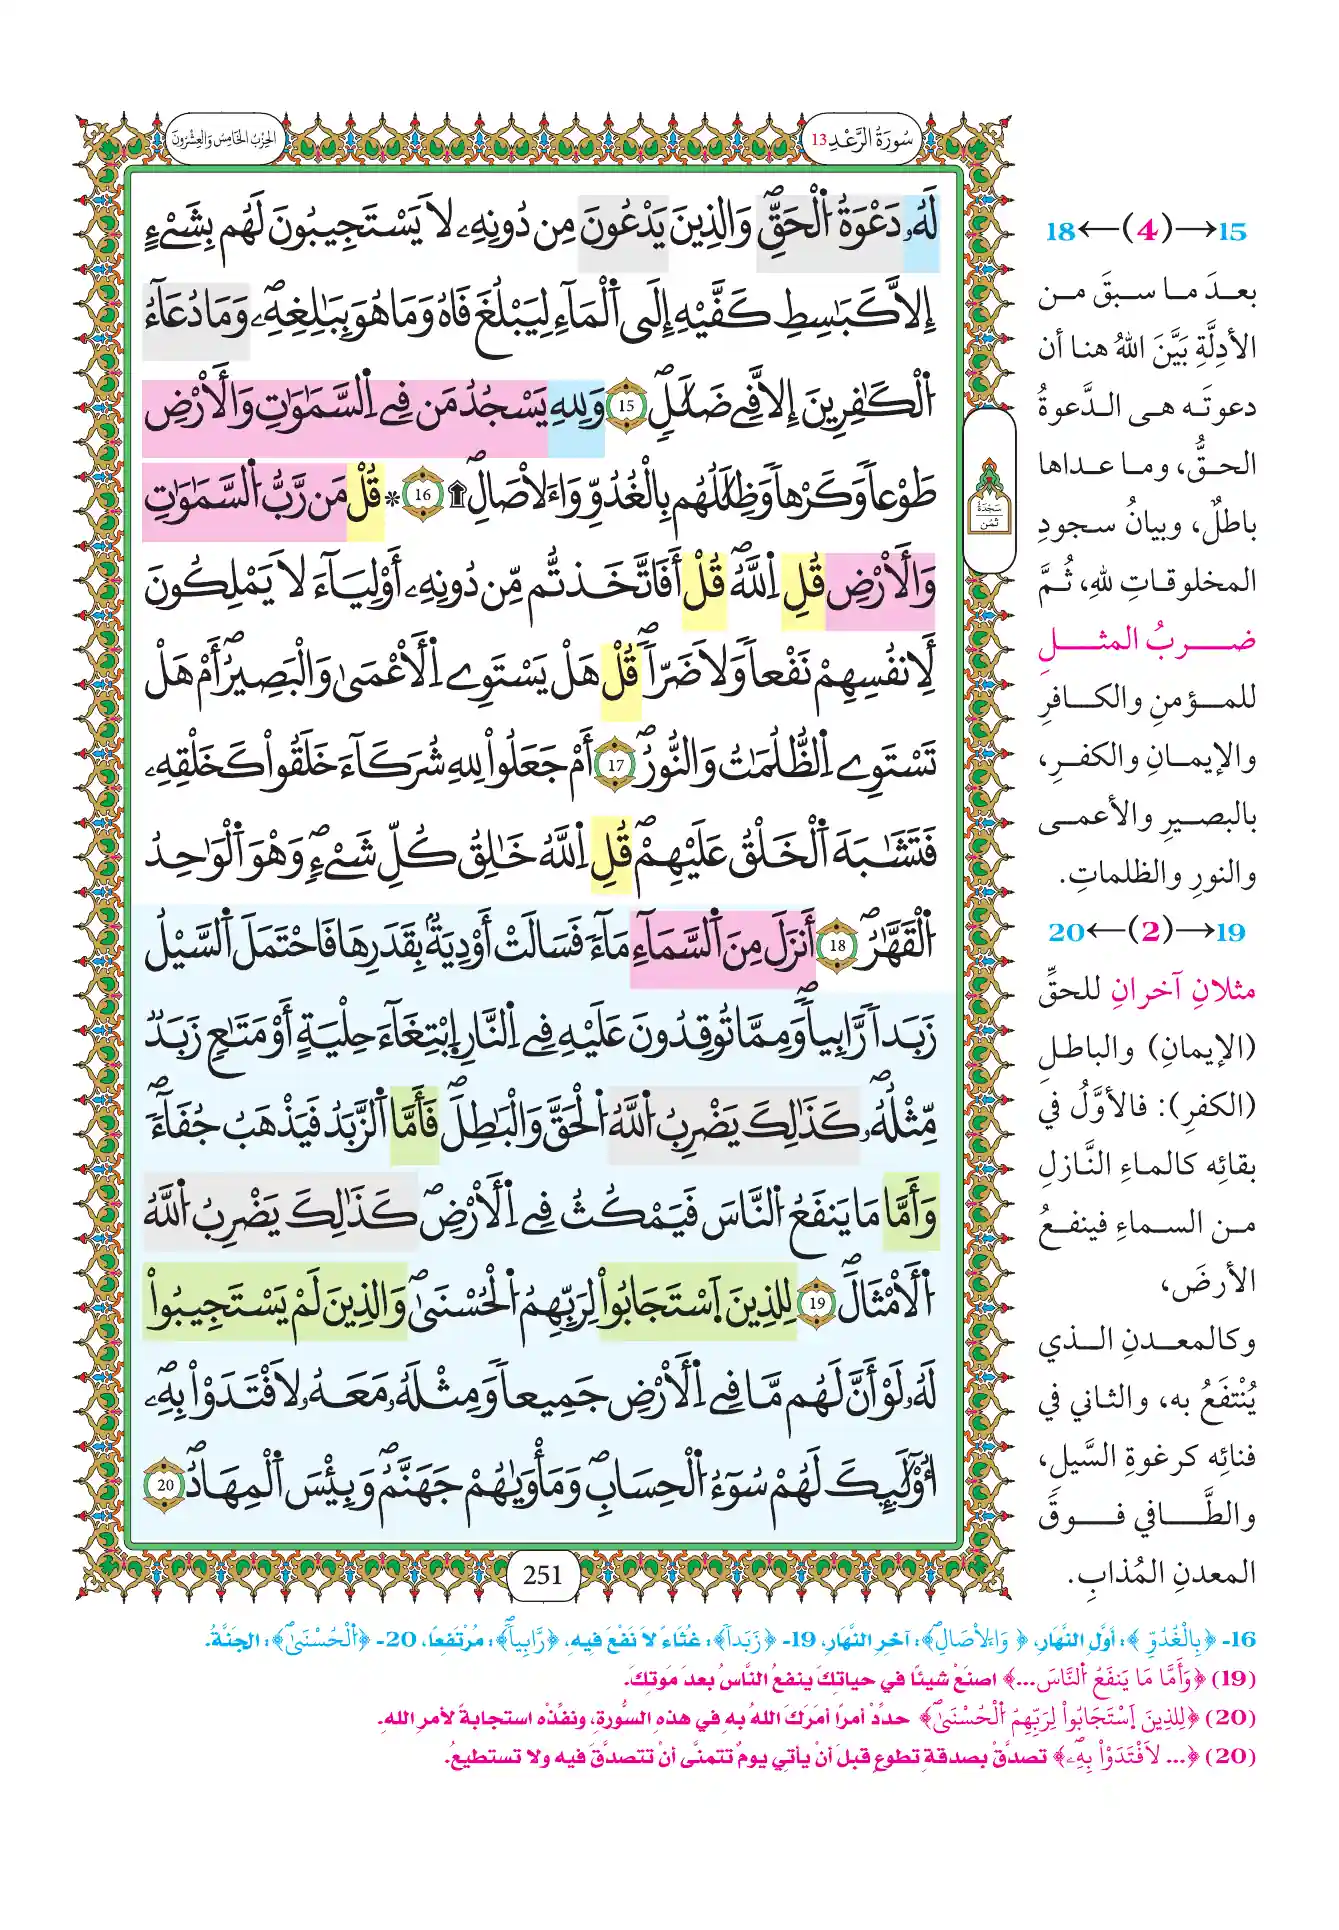 سُورَةُ الرَّعْدِ 13
الحِزْبُ الخَامِسُ وَالعِشْرُونَ
لَهُۥ دَعْوَةُ اُ۬لْحَقِّۖ وَالذِينَ يَدْعُونَ مِن دُونِهِۦ لَا يَسْتَجِيبُونَ لَهُم بِشَےْءٍ
اِلَّا كَبَٰسِطِ كَفَّيْهِ إِلَى اَ۬لْمَآءِ لِيَبْلُغَ فَاهُ وَمَا هُوَ بِبَٰلِغِهِۦۖ وَمَا دُعَآءُ
اُ۬لْكَٰفِرِينَ إِلَّا فِے ضَلَٰلٖۖ 15 وَلِلهِ يَسْجُدُ مَن فِے اِ۬لسَّمَٰوَٰتِ وَالْأَرْضِ
طَوْعاٗ وَكَرْهاٗ وَظِلَٰلُهُم بِالْغُدُوِّ وَالْأٓصَالِۖ ۩ 16 ۞ قُلْ مَن رَّبُّ اُ۬لسَّمَٰوَٰتِ
وَالْأَرْضِ قُلِ اِ۬للَّهُۖ قُلْ أَفَاتَّخَذتُّم مِّن دُونِهِۦٓ أَوْلِيَآءَ لَا يَمْلِكُونَ
لِأَنفُسِهِمْ نَفْعاٗ وَلَا ضَرّاٗۖ قُلْ هَلْ يَسْتَوِے اِ۬لْأَعْمَىٰ وَالْبَصِيرُۖ أَمْ هَلْ
تَسْتَوِے اِ۬لظُّلُمَٰتُ وَالنُّورُۖ 17 أَمْ جَعَلُواْ لِلهِ شُرَكَآءَ خَلَقُواْ كَخَلْقِهِۦ
فَتَشَٰبَهَ اَ۬لْخَلْقُ عَلَيْهِمْۖ قُلِ اِ۬للَّهُ خَٰلِقُ كُلِّ شَےْءٖۖ وَهُوَ اَ۬لْوَٰحِدُ
اُ۬لْقَهَّٰرُۖ 18 أَنزَلَ مِنَ اَ۬لسَّمَآءِ مَآءٗ فَسَالَتْ أَوْدِيَةُۢ بِقَدَرِهَا فَاحْتَمَلَ اَ۬لسَّيْلُ
زَبَداٗ رَّابِياٗۖ وَمِمَّا تُوقِدُونَ عَلَيْهِ فِے اِ۬لنَّارِ اِ۪بْتِغَآءَ حِلْيَةٍ أَوْ مَتَٰعٖ زَبَدٞ
مِّثْلُهُۥۖ كَذَٰلِكَ يَضْرِبُ اُ۬للَّهُ اُ۬لْحَقَّ وَالْبَٰطِلَۖ فَأَمَّا اَ۬لزَّبَدُ فَيَذْهَبُ جُفَآءٗۖ
وَأَمَّا مَا يَنفَعُ اُ۬لنَّاسَ فَيَمْكُثُ فِے اِ۬لْأَرْضِۖ كَذَٰلِكَ يَضْرِبُ اُ۬للَّهُ
اُ۬لْأَمْثَالَۖ 19 لِلذِينَ اَ۪سْتَجَابُواْ لِرَبِّهِمُ اُ۬لْحُسْنَىٰۖ وَالذِينَ لَمْ يَسْتَجِيبُواْ
لَهُۥ لَوْ أَنَّ لَهُم مَّا فِے اِ۬لْأَرْضِ جَمِيعاٗ وَمِثْلَهُۥ مَعَهُۥ لَافْتَدَوْاْ بِهِۦٓۖ
أُوْلَٰٓئِكَ لَهُمْ سُوٓءُ اُ۬لْحِسَابِۖ وَمَأْوَيٰهُمْ جَهَنَّمُۖ وَبِئْسَ اَ۬لْمِهَادُۖ 20
سَجْدَة
ثُمُن
15→(4)←18
بعدَ ما سبقَ من
الأدِلَّةِ بَيَّنَ اللهُ هنا أن
دعوتَه هى الدَّعوةُ
الحقُّ، وما عداها
باطلٌ، وبيانُ سجودِ
المخلوقاتِ للهِ، ثُمَّ
ضربُ المثلِ
للمؤمنِ والكافرِ
والإيمانِ والكفرِ،
بالبصيرِ والأعمى
والنورِ والظلماتِ.
19→(2)←20
مثلانِ آخرانِ للحقِّ
(الإيمانِ) والباطلِ
(الكفرِ): فالأوَّلُ في
بقائِه كالماءِ النَّازلِ
من السماءِ فينفعُ
الأرضَ،
وكالمعدنِ الذي
يُنْتفَعُ به، والثاني في
فنائِه كرغوةِ السَّيلِ،
والطَّافي فوقَ
المعدنِ المُذابِ.
251
16- ﴿بِالْغُدُوِّ﴾: أوَّلِ النَّهارِ، ﴿وَالْأٓصَالِۖ﴾: آخرِ النَّهارِ، 19- ﴿زَبَداٗ﴾: غُثاءً لا نَفْعَ فيهِ، ﴿رَّابِياٗۖ﴾: مُرْتَفعًا، 20- ﴿اُ۬لْحُسْنَىٰۖ﴾: الجَنَّةُ.
(19) ﴿وَأَمَّا مَا يَنفَعُ اُ۬لنَّاسَ...﴾ اصنعْ شيئًا في حياتِكَ ينفعُ النَّاسَ بعدَ مَوتِكَ.
(20) ﴿لِلذِينَ اَ۪سْتَجَابُواْ لِرَبِّهِمُ اُ۬لْحُسْنَىٰۖ﴾ حدِّدْ أمرًا أمَرَكَ اللهُ بهِ في هذهِ السُّورةِ، ونفِّذْه استجابةً لأمرِ اللهِ.
(20) ﴿... لَافْتَدَوْاْ بِهِۦٓۖ﴾ تصدَّقْ بصدقةِ تطوعٍ قبلَ أنْ يأتي يومٌ تتمنَّى أنْ تتصدَّقَ فيه ولا تستطيعُ.